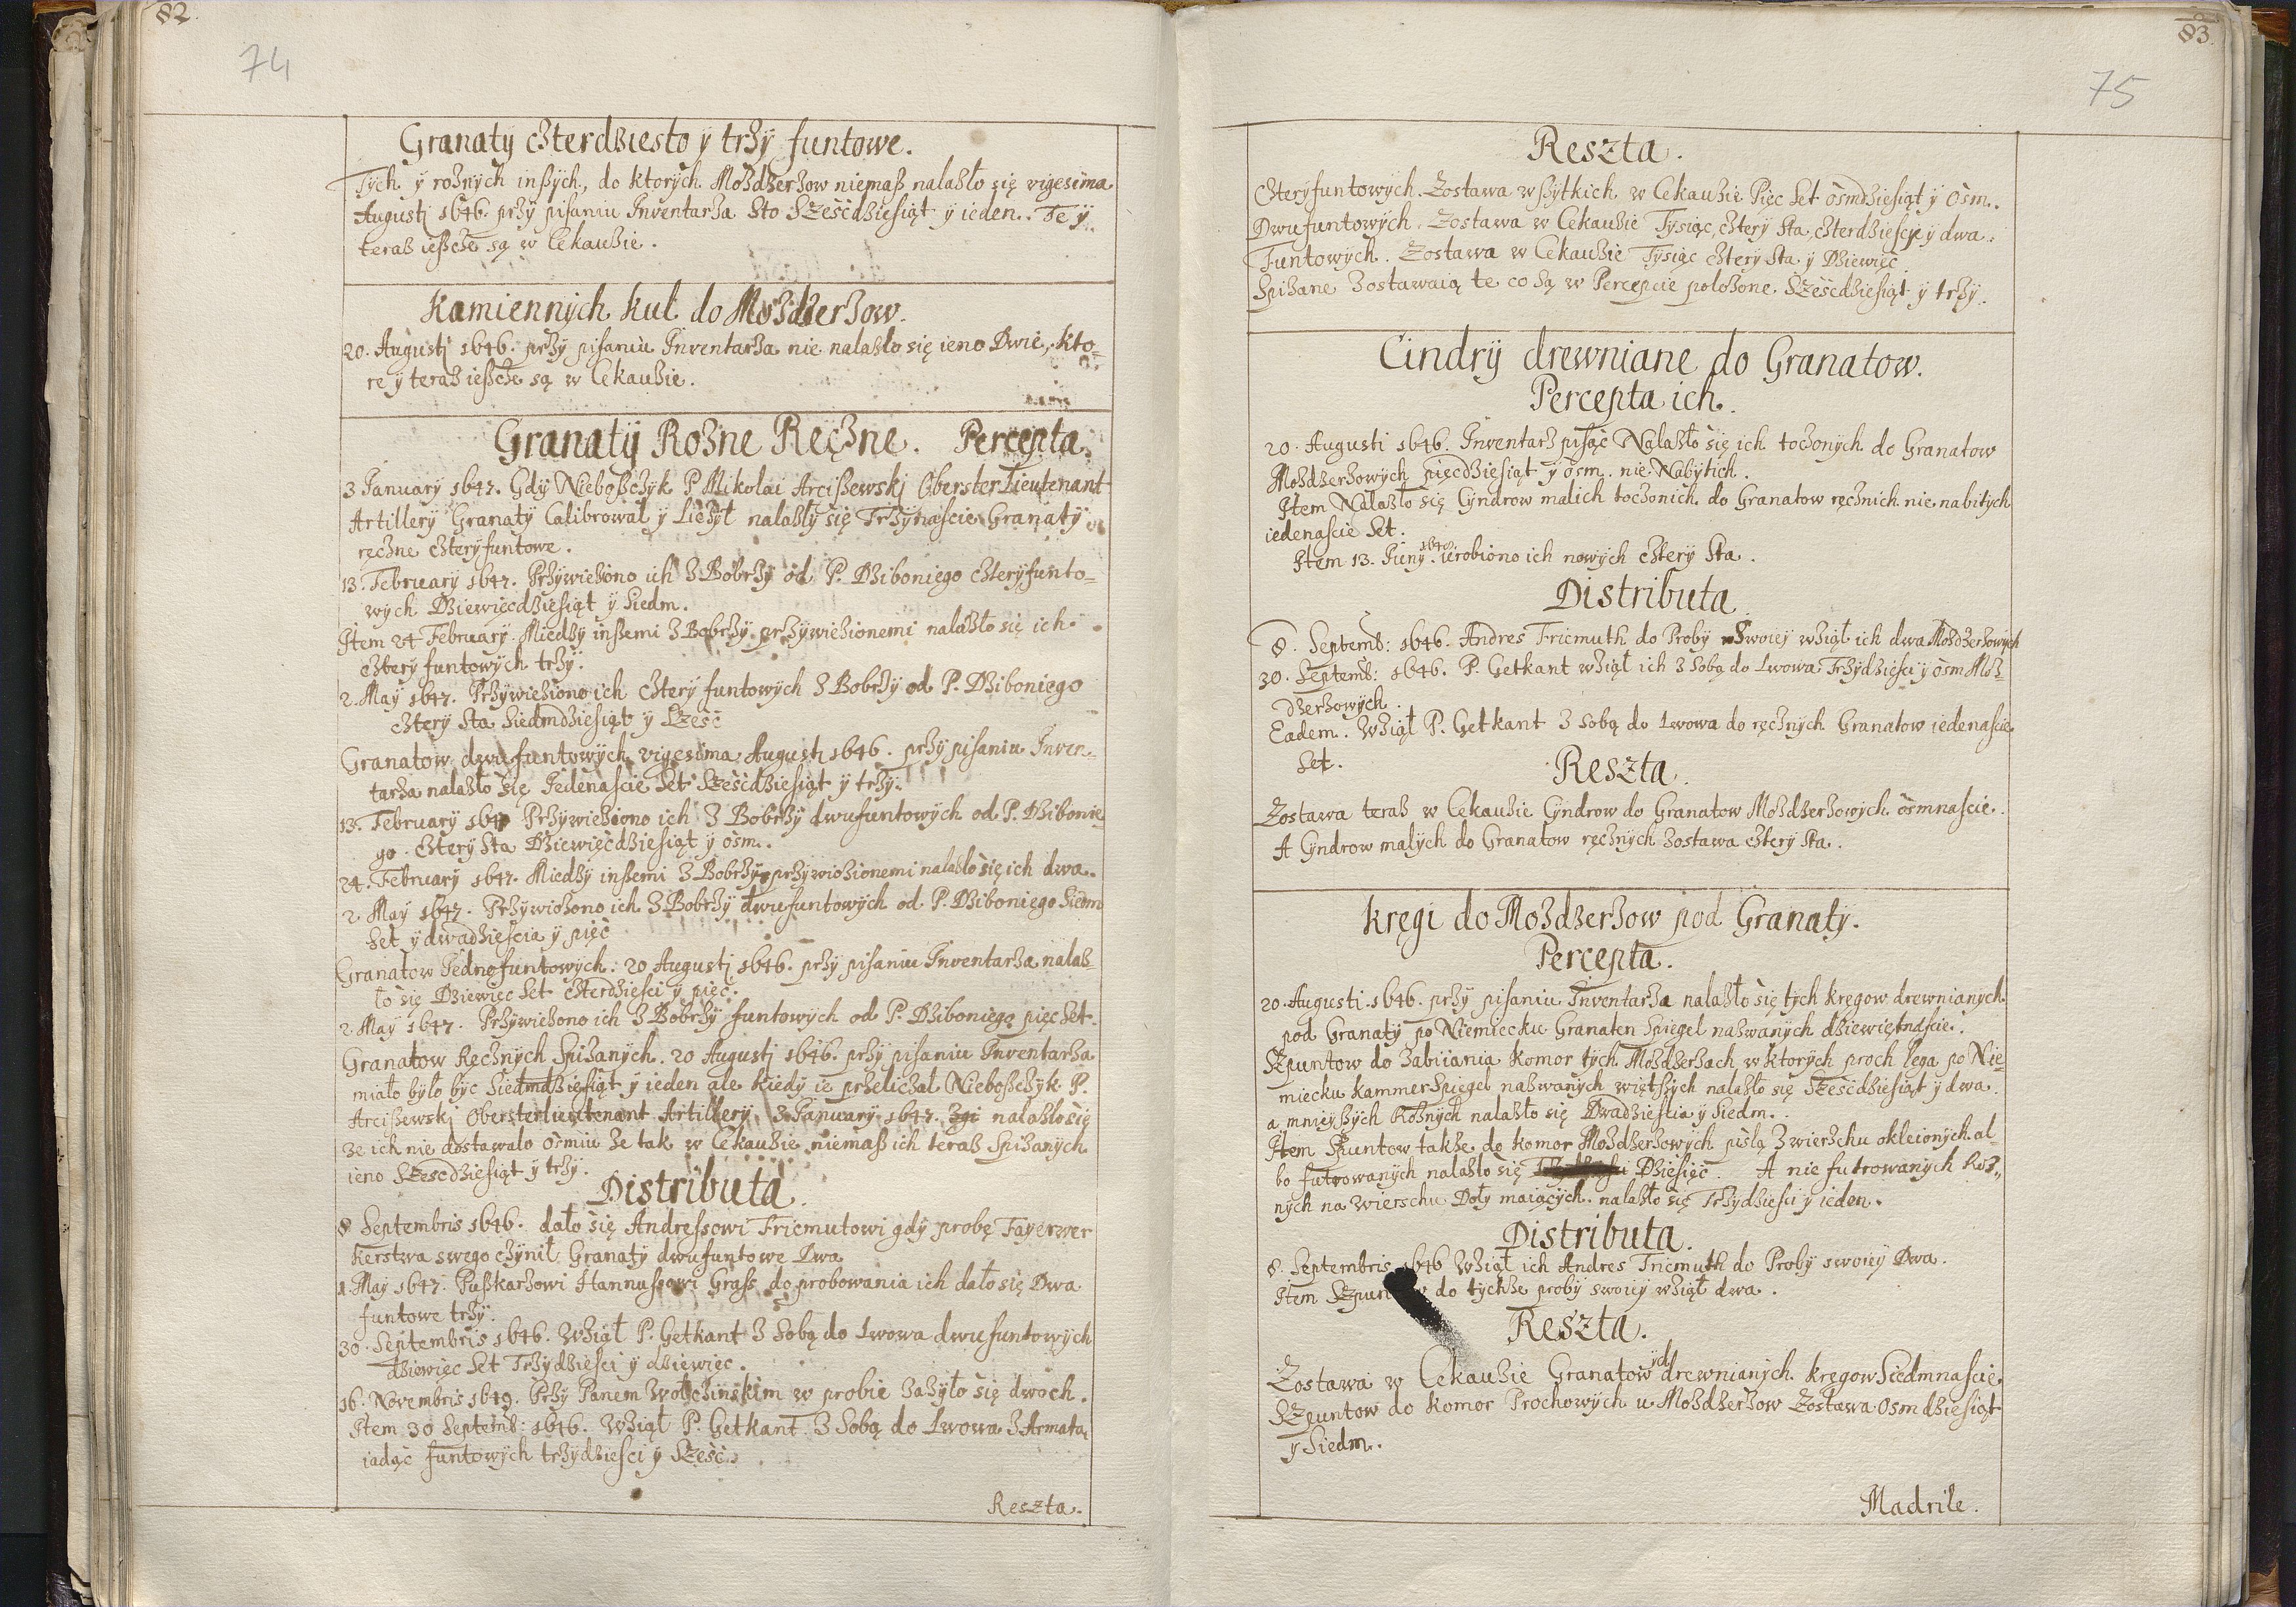 82
74
Granaty czterdziesto y trzy funtowe.
Tych y roznych inszych, do ktorych Mozdzerzow niemasz nalazło się vigesima
Augusti 1646. przy pisaniu Inventarza Sto Szescdziesiąt y ieden. Te y
teraz ieszcze są w Cekauzie.
Kamiennych kul do Mozdzerzow.
20. Augusti 1646. przy pisaniu Inventarza nie nalazło się ieno Dwie, kto=
re y teraz ieszcze są w Cekauzie.
Granaty Rozne Ręczne. Percepta.
3 January 1647. Gdy Nieboszczyk P. Mikolai Arciszewski ObersterLieutenant
Artillery Granaty Calibrował y Liczył nalazły się Trzynascie Granaty
ręczne czteryfuntowe.
13. February 1647. Przywieziono ich z Bobrzy od P. Dziboniego czteryfunto=
wych Dziewięcdziesiąt y Siedm.
Item 24 February. Miedzy inszemi z Bobrzy przywiezionemi nalazło się ich
cztery funtowych trzy.
2. May 1647. Przywieziono ich cztery funtowych z Bobrzy od P. Dziboniego
cztery Sta Siedmdziesiąt y Szesc
Granatow dwufuntowych vigesima Augusti 1646. przy pisaniu Inven=
tarza nalazło się Jedenascie Set Szescdziesiąt y trzy.
13. February 1647 Przywieziono ich z Bobrzy dwufuntowych od P. Dzibonie=
go. cztery Sta Dziewięcdziesiąt y osm.
24. February 1647. Miedzy inszemi z Bobrzy przywiezionemi nalazło się ich dwa.
2 May 1647. Przywiozono ich z Bobrzy dwufuntowych od P. Dziboniego Siedm
Set y dwadziescia y pięc
Granatow Jednofuntowych. 20 Augusti 1646. przy pisaniu Inventarza nalaz=
ło się Dziewięc Set czterdziesci y pięc.
2 May 1647. Przywiezono ich z Bobrzy funtowych od P. Dziboniego pięc Set.
Granatow Ręcznych Spizanych. 20 Augusti 1646. przy pisaniu Inventarza
miało było byc Siedmdziesiąt y ieden ale kiedy ie przeliczał Niebosczyk P.
Arciszewski Obersterlieutenant Artillery 3 January 1647. nalazło się
ze ich nie dostawało osmiu ze tak w Cekauzie niemasz ich teraz Spizanych
ieno Szescdziesiąt y trzy.
Distributa.
8 Septembris 1646. dało się Andressowi Fricmutowi gdy probę Fayerwer
kerstwa swego czynił Granaty dwufuntowe Dwa
1. May 1647. Puszkarzowi Hannussowi Grass do probowania ich dało się Dwa
funtowe trzy.
30. Septembris 1646. Wziął P. Getkant z Sobą do Lwowa dwufuntowych
dziewięc Set Trzydziesci y dziewięc.
16. Novembris 1649. Przy Panem Wołczinskim w probie zazyło się dwoch.
Item 30 Septemb: 1646. Wziął P. Getkant z Sobą do Lwowa z Armatą
iadąc funtowych trzydziesci y Szesc.
Reszta.
83.
75
Reszta.
czteryfuntowych. Zostawa wszytkich w Cekauzie Pięc Set osmdziesiąt y Osm.
Dwufuntowych. Zostawa w Cekauzie Tysiąc, cztery Sta, czterdziescie y dwa.
Funtowych. Zostawa w Cekauzie Tysiąc cztery Sta y Dziewięc.
Spizane zostawaią te co są w Percepcie położone. Szescdziesiąt y trzy.
Cindry drewniane do Granatow.
Percepta ich.
20. Augusti 1646. Inventarz pisąc Nalazło się ich toczonych do Granatow
Mozdzerzowych pięcdziesiąt y osm. nie Nabytich.
Item Nalazło się Cyndrow malich toczonich do Granatow ręcznich nie nabitych
iedenascie Set.
Item 13. Juny 1648. urobiono ich nowych cztery Sta.
Distributa
8. Septemb: 1646. Andres Fricmuth do Proby Swoiej wziął ich dwa Mozdzerzowych
30. Septemb: 1646. P. Getkant wziął ich z Sobą do Lwowa Trzydziesci y osm Moz=
dzerzowych.
Eadem. Wziął P. Getkant z Sobą do Lwowa do ręcznych Granatow iedenascie
Set.
Reszta.
Zostawa teraz w Cekauzie Cyndrow do Granatow Mozdzerzowych osmnascie.
A Cyndrow małych do Granatow ręcznych zostawa cztery Sta.
Kręgi do Mozdzerzow pod Granaty.
Percepta.
20. Augusti 1646. przy pisaniu Inventarza nalazło się tych kręgow drewnianych
pod Granaty po Niemiecku Granaten Spiegel nazwanych dziewiętnascie.
Szpuntow do zabiiania Komor tych Mozdzerzach w ktorych proch lega po Nie=
miecku Kammer Spiegel nazwanych więtszych nalazło się Szescdziesiąt y dwa.
a mnieyszych Roznych nalazło się Dwadziestia y Siedm.
Item Szpuntow takze do komor Mozdzerzowych pislą z wierzchu okleionych al=
bo futrowanych nalazło się Dziesięc. A nie futrowanych Roz=
nych na wierschu Doły maiących. nalazło się Trzydziesci y ieden.
Distributa.
8. Septembris 1646 Wziął ich Andres Fricmuth do Proby swoiey Dwa.
Item do tychze proby swoiey wziął dwa.
Reszta.
Zostawa w Cekauzie Granatowych drewnianych kręgow Siedmnascie.
Szpuntow do komor Prochowych u Mozdzerzow Zostawa Osmdziesiąt
y Siedm.
Madrile.